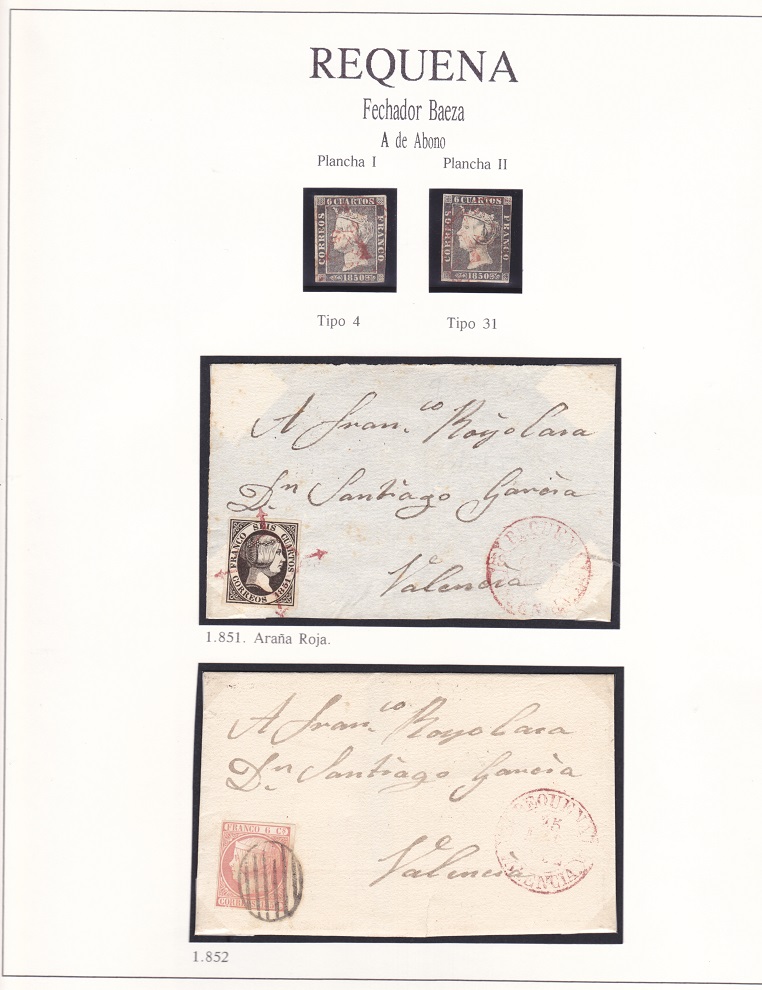 REQUENA
Fechador Baeza
A de Abono
Plancha I
Plancha II
6 CUARTOS
CORREOS
FRANCO
1850
A
6 CUARTOS
CORREOS
FRANCO
1850
Tipo 4
Tipo 31
A Fran.co Royo Lara
Dn Santiago García
Valencia
FRANCO SEIS CUARTOS
CORREOS 1851
REQUENA
1.851. Araña Roja.
A Fran.co Royo Lara
Dn Santiago García
Valencia
FRANCO 6 Cs
REQUENA
VALENCIA
1.852